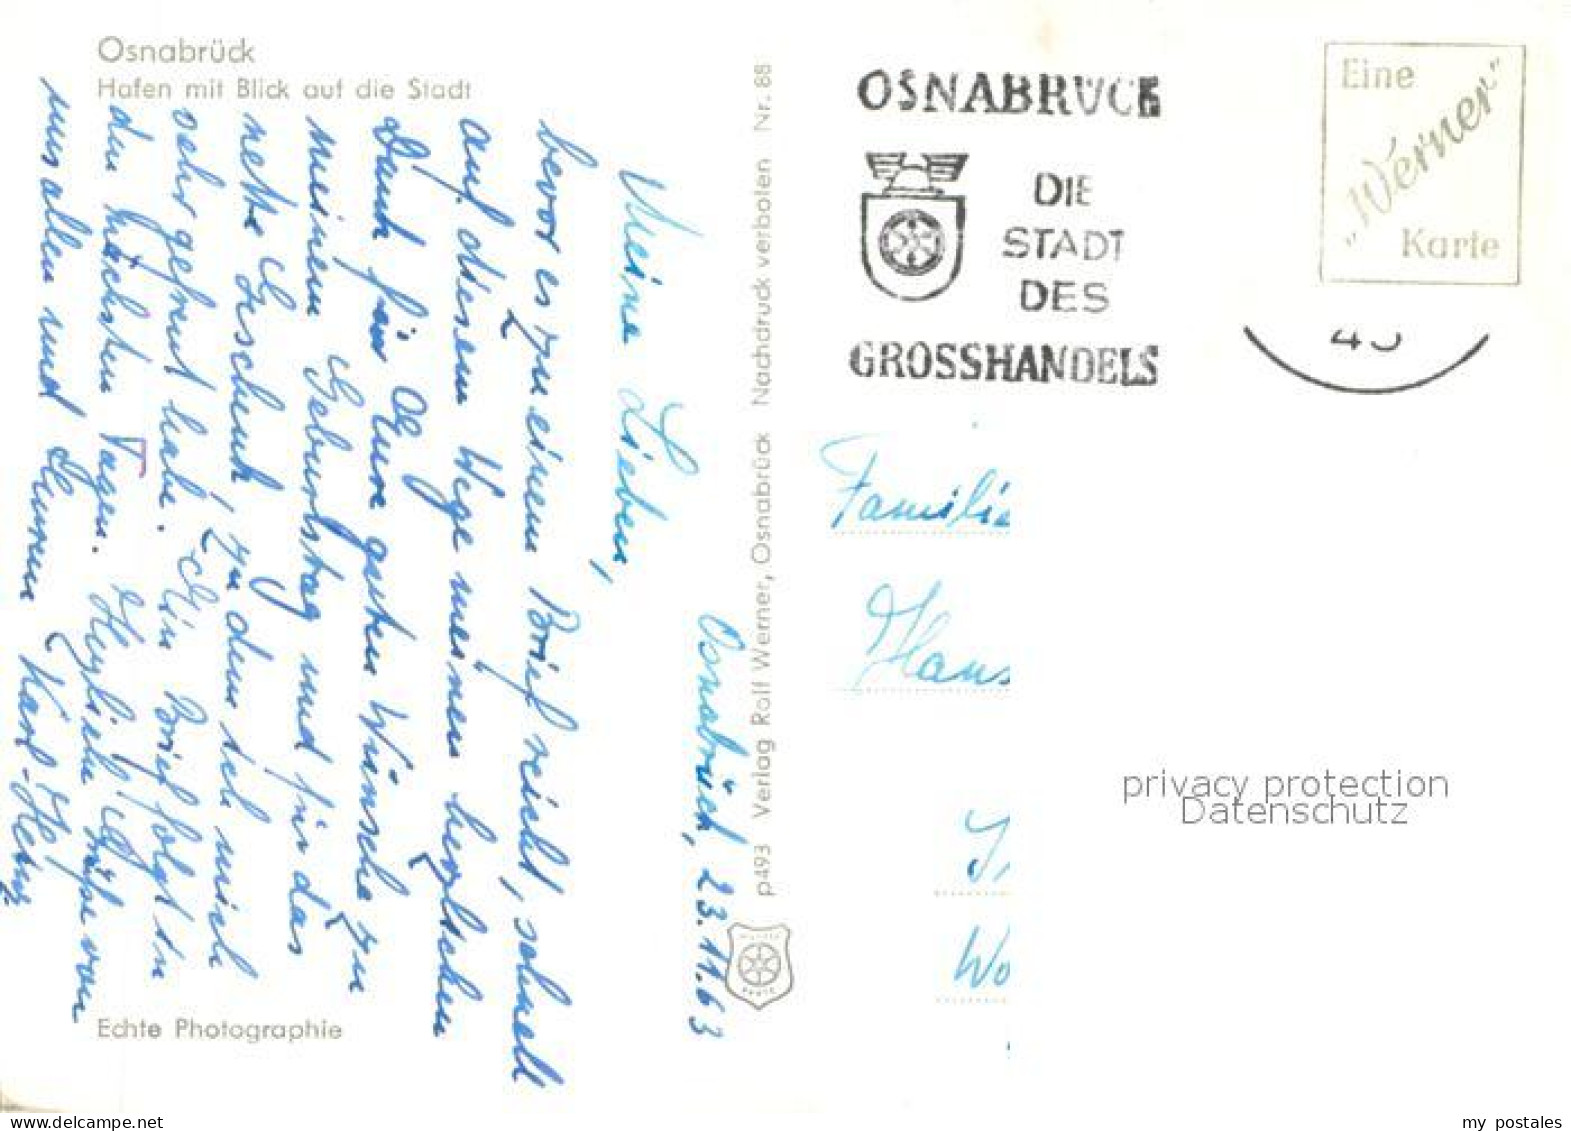 Osnabrück
Hafen mit Blick auf die Stadt
Osnabrück, 23.11.63
Meine Lieben,
bevor es zu einem Brief reicht, schnell
auf diesem Wege meinen herzlichen
Dank für Eure guten Wünsche zu
meinem Geburtstag und für das
nette Geschenk, zu dem ich mich
sehr gefreut habe. Ein Brief folgt in
den nächsten Tagen. Herzliche Grüße von
uns allen und Eurem Karl-Heinz
Echte Photographie
p493 Verlag Rolf Werner, Osnabrück Nachdruck verboten Nr. 88
OSNABRÜCK
DIE
STADT
DES
GROSSHANDELS
Eine
„Werner"
Karte
Familie
Hans
Wo
privacy protection
Datenschutz
delcampe.net
my_postales